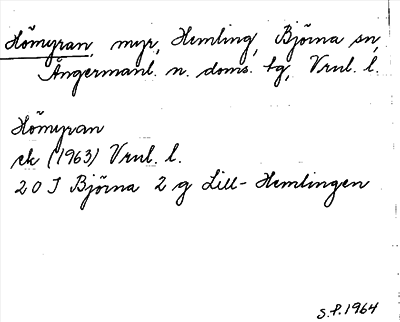 Hömyran, myr, Hemling, Björna sn,
Ångermanl. n. doms. tg, Vrnl. l.
Hömyran
ek (1963) Vrnl. l.
20 J Björna 2 g Lill-Hemlingen
S.P. 1964